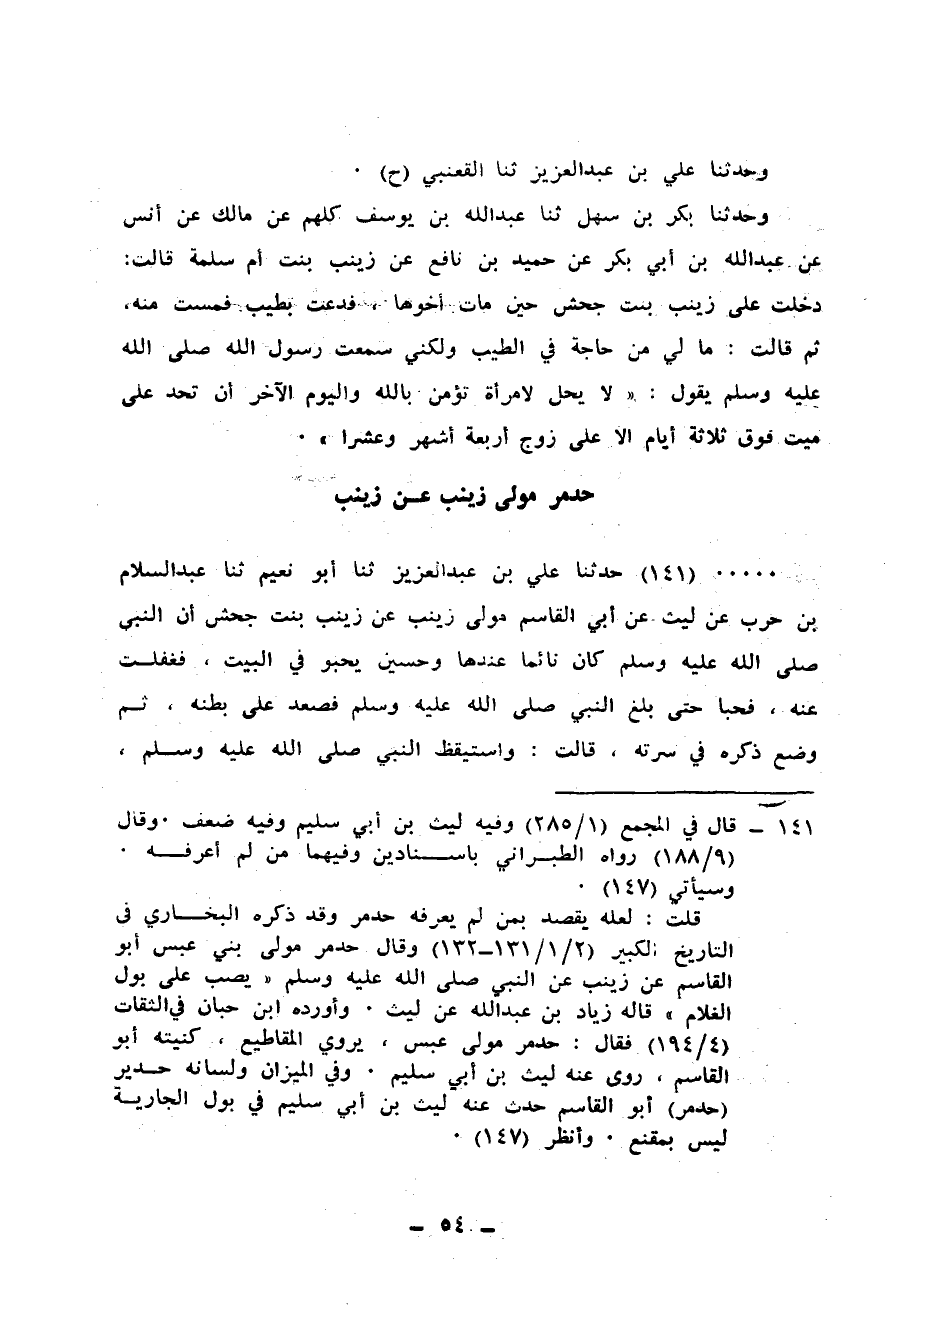 وحدثنا علي بن عبدالعزيز ثنا القعنبي (ح) ٠
وحدثنا بكر بن سهل ثنا عبدالله بن يوسف كلهم عن مالك عن أنس
عن عبدالله بن أبي بكر عن حميد بن نافع عن زينب بنت أم سلمة قالت:
دخلت على زينب بنت جحش حين مات أخوها ، فدعت بطيب فمست منه،
ثم قالت : ما لي من حاجة في الطيب ولكني سمعت رسول الله صلى الله
عليه وسلم يقول : « لا يحل لامرأة تؤمن بالله واليوم الآخر أن تحد على
ميت فوق ثلاثة أيام الا على زوج أربعة أشهر وعشرا » ٠
حدمر مولى زينب عـن زينب
٠٠٠٠٠ (١٤١) حدثنا علي بن عبدالعزيز ثنا أبو نعيم ثنا عبدالسلام
بن حرب عن ليث عن أبي القاسم مولى زينب عن زينب بنت جحش أن النبي
صلى الله عليه وسلم كان نائما عندها وحسين يحبو في البيت ، فغفلـت
عنه ، فحبا حتى بلغ النبي صلى الله عليه وسلم فصعد على بطنه ، ثـم
وضع ذكره في سرته ، قالت : واستيقظ النبي صلى الله عليه وسـلم ،
١٤١ ـ قال في المجمع (٢٨٥/١) وفيه ليث بن أبي سليم وفيه ضعف ٠وقال
(١٨٨/٩) رواه الطبـراني باسـنادين وفيهما من لم أعرفـه ٠
وسيأتي (١٤٧) ٠
قلت : لعله يقصد بمن لم يعرفه حدمر وقد ذكره البخـاري في
التاريخ الكبير (١٣١/١/٢ــ١٣٢) وقال حدمر مولى بني عبس أبو
القاسم عن زينب عن النبي صلى الله عليه وسلم « يصب على بول
الغلام » قاله زياد بن عبدالله عن ليث ٠ وأورده ابن حبان في الثقات
(١٩٤/٤) فقال : حدمر مولى عبس ، يروي المقاطيع ، كنيته أبو
القاسم ، روى عنه ليث بن أبي سليم ٠ وفي الميزان ولسانه حـدير
(حدمر) أبو القاسم حدث عنه ليث بن أبي سليم في بول الجاريـة
ليس بمقنع ٠ وأنظر (١٤٧) ٠
ـ ٥٤ ـ